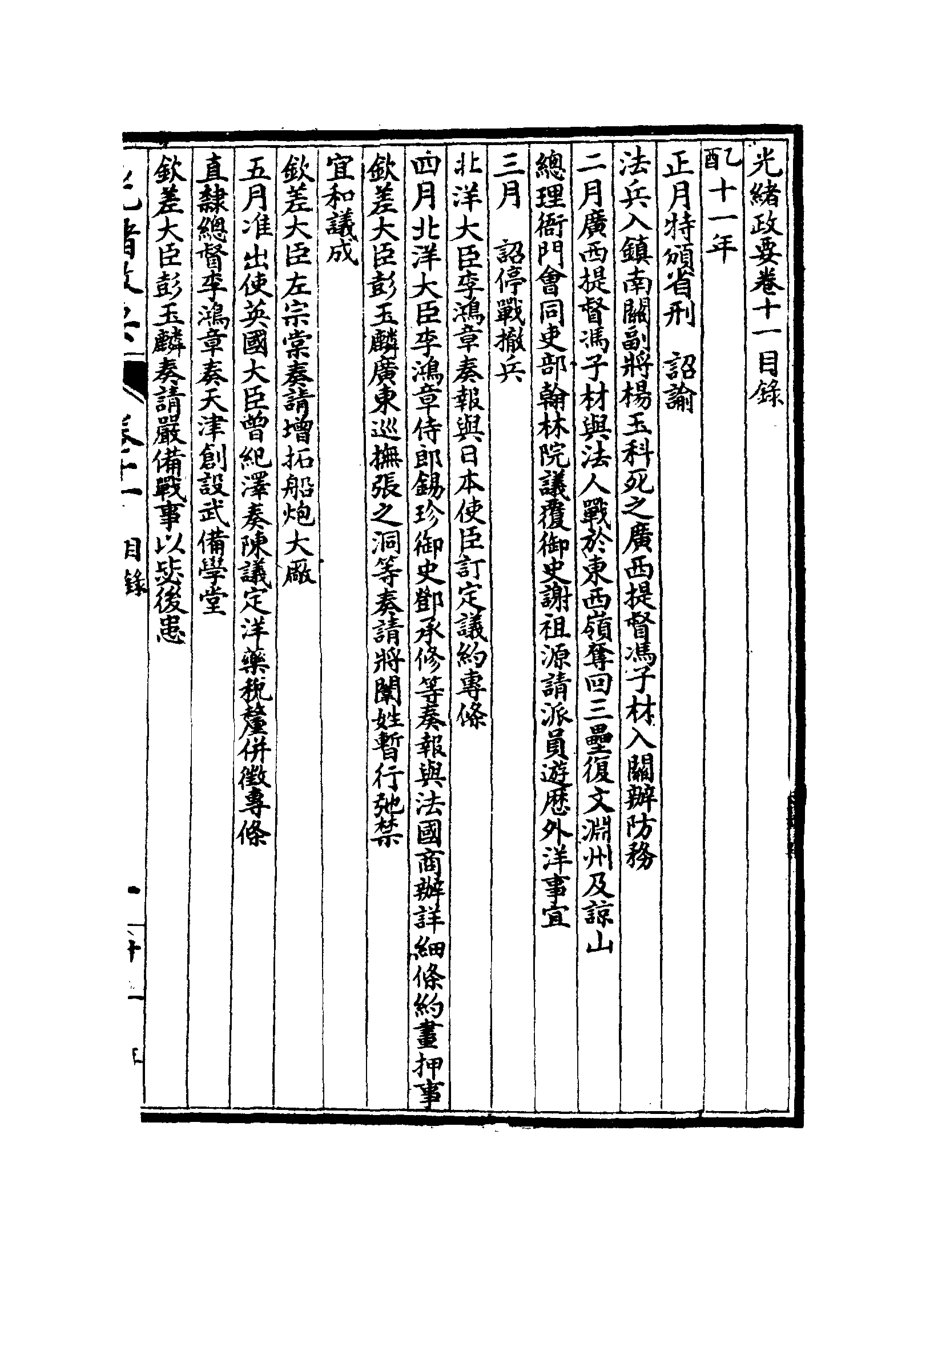 光緒政要卷十一目錄
乙酉十一年
正月特頒省刑　詔諭
法兵入鎮南關副將楊玉科死之廣西提督馮子材入關辦防務
二月廣西提督馮子材與法人戰於東西嶺奪回三壘復文淵州及諒山
總理衙門會同吏部翰林院議覆御史謝祖源請派員遊歷外洋事宜
三月　詔停戰撤兵
北洋大臣李鴻章奏報與日本使臣訂定議約專條
四月北洋大臣李鴻章侍郎錫珍御史鄧承修等奏報與法國商辦詳細條約畫押事
欽差大臣彭玉麟廣東巡撫張之洞等奏請將闈姓暫行弛禁
宜和議成
欽差大臣左宗棠奏請增拓船炮大厰
五月准出使英國大臣曾紀澤奏陳議定洋藥稅釐併徵專條
直隸總督李鴻章奏天津創設武備學堂
欽差大臣彭玉麟奏請嚴備戰事以毖後患
光緒政要　卷十一　目錄